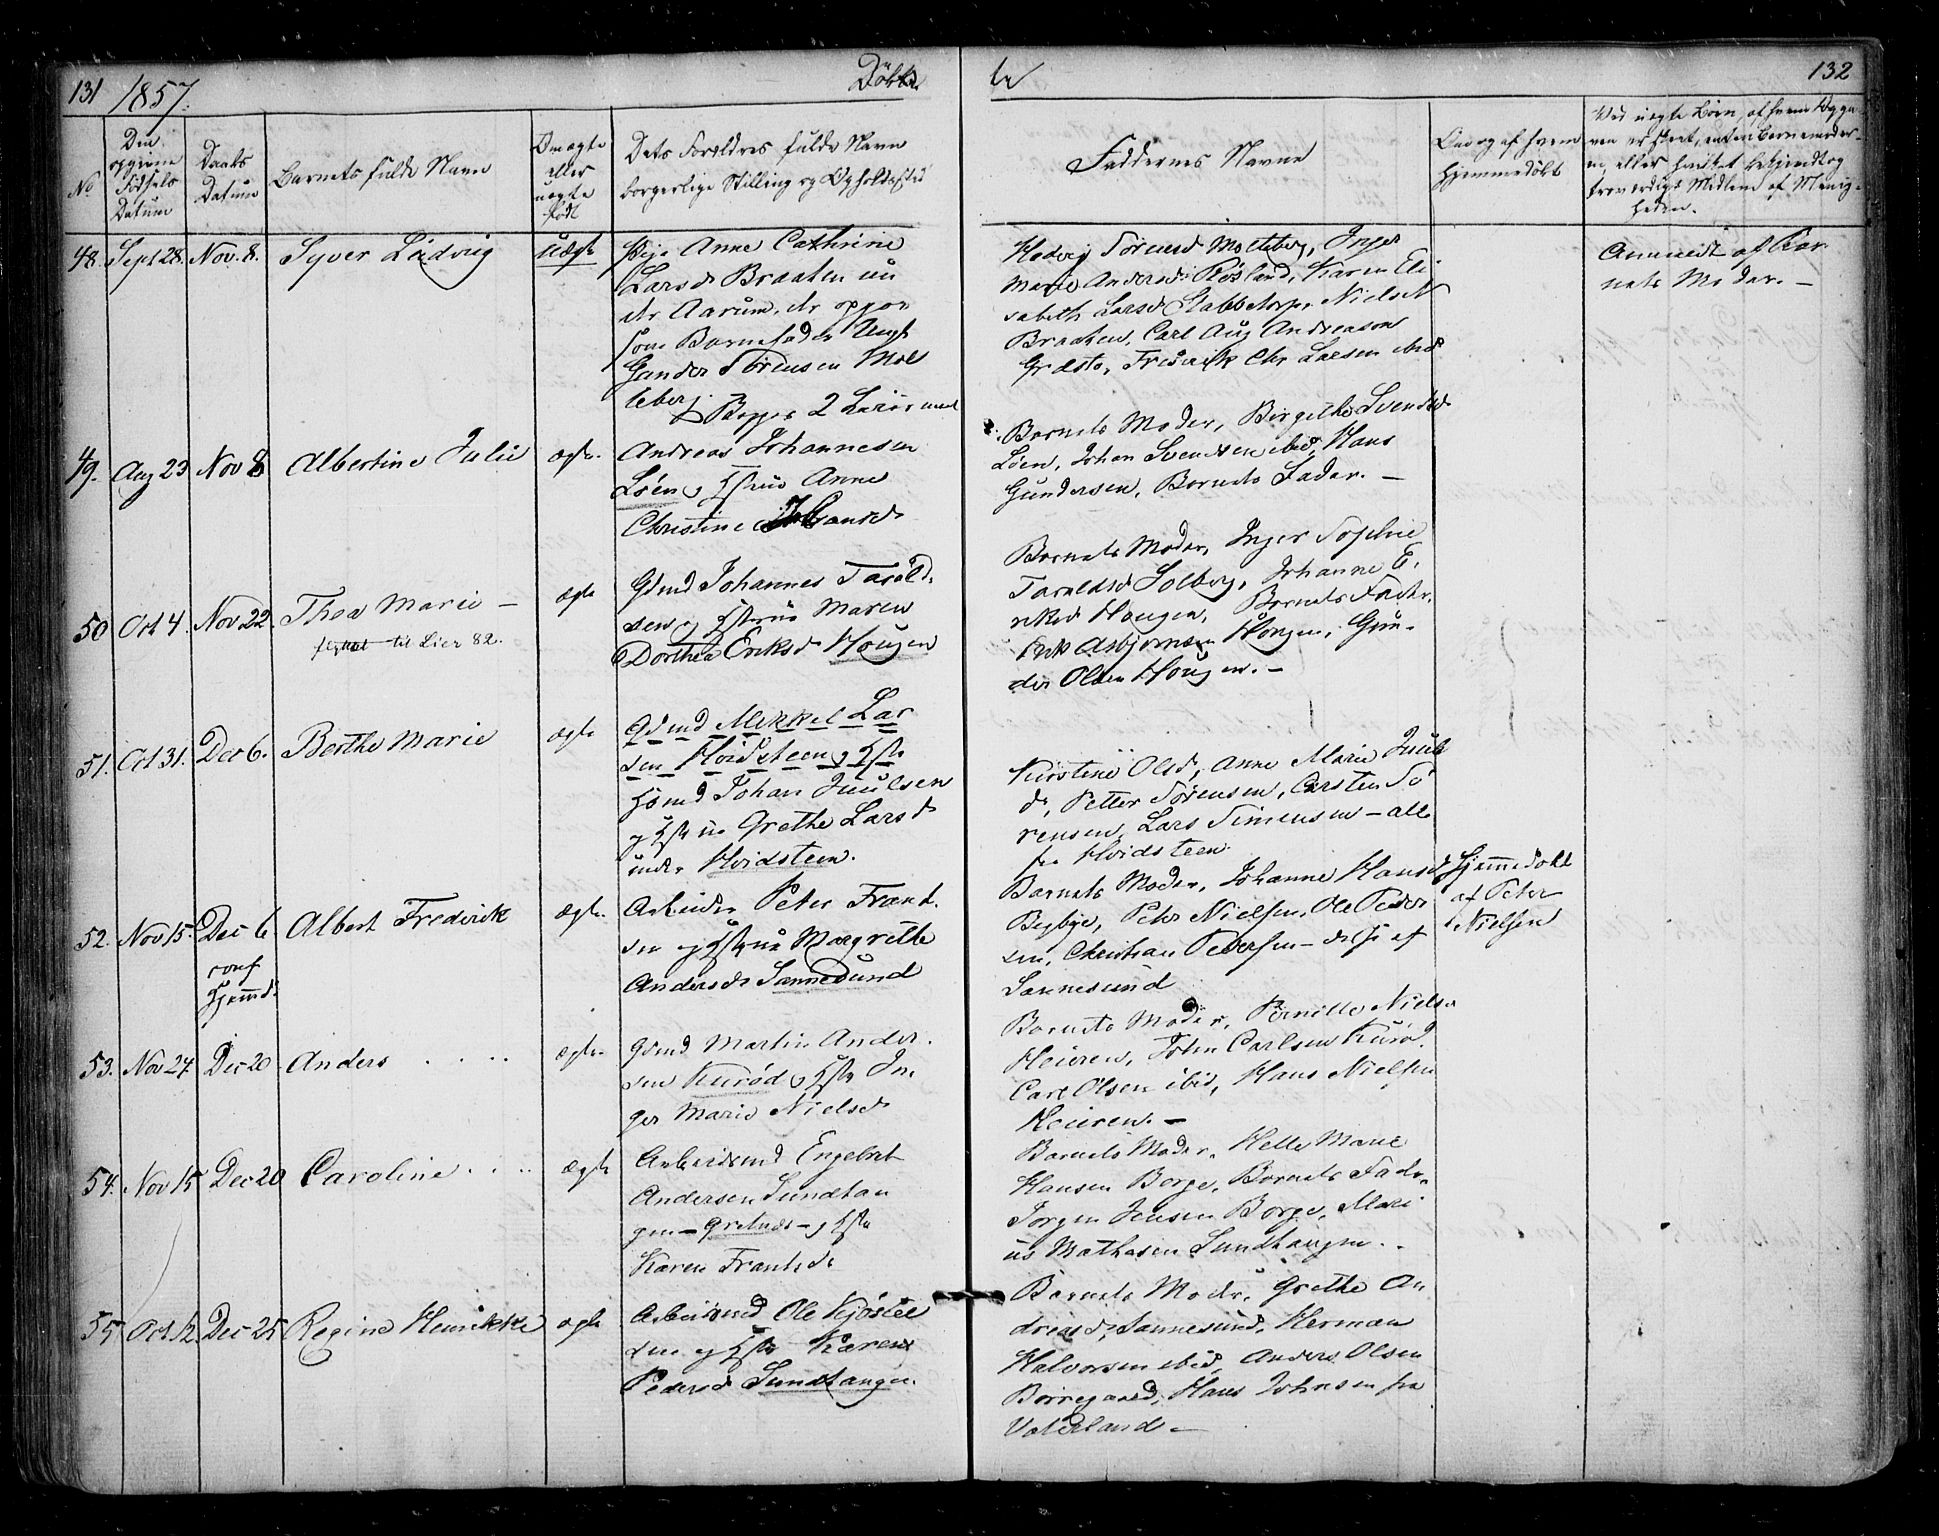 131 1857. Døbte 132
No
Den opgivne Fødsels Datum
Daabs Datum
Barnets fulde Navn
Om ægte eller uægte født
Dets Forældres fulde Navn
borgerlige Stilling og Opholdssted
Faddernes Navne
Om og af hvem
hjemmedøbt
Ved uægte Børn, af hvem Opga-
ven er skeet, enten Barnemoder-
en, eller hvilket bekjendt og
troværdigt Medlem af Menig-
heden.
48. Sept 28. Nov. 8. Syver Ludvig uægte
Pige Anne Cathrine
Larsd. Braaten un
der Aarum, der opgav
som Barnefader Ungk
Gunder Sørensen Mol
teberg Begges 2 Leiermaal
Hedvig Sørensd Molteberg, Inger
Marie Andersd. Røsland, Karen Eli
sabeth Larsd Stabbetorp, Niels
Braaten, Carl Aug Andreasen
Frederik Chr Larsen ibid
Anmeldt af Bar
nets Moder. –
49. Aug 23 Nov 8 Albertine Julie ægte.
Andreas Johannesen
Løen og Hustrue Anne
Christine
Barnets Moder, Birgithe Svendsd
Løen, Johan Svendsen ibid, Hans
Gundersen, Barnets Fader. –
50 Oct 4. Nov 22. Thea Marie – ægte
flyttet til Lier 82.
Gdmd Johannes Tarald-
sen og Hustrue Maren
Dorthea Eriksd Hougen
Barnets Moder, Inger Sophie
Taraldsd Solberg, Johanne E.
riksd Hougen, Barnets Fader,
Erik Asbjørnsen Hougen, Gun-
der Olsen Hougen. –
51. Oct 31. Dec 6. Berthe Marie ægte
Gdmd Mikkel Lar
sen Hvidsteen og Hstr
Hsmd Johan Juulsen
og Hstrue Grethe Larsd
under Hvidsteen.
Kirstine Olsd, Anne Marie Juuls
d, Petter Sørensen, Carsten Sø
rensen, Lars Simensen – alle
fra Hvidsteen.
52. Nov 15. Dec 6 Albert Frederick ægte.
conf
Hjemmd.
Arbeider Peter Frant.
sen og Hstrue Margrethe
Andersd Sannesund
Barnets Moder, Johanne Hansd
Bygbye, Peter Nielsen, Ole Peder
sen, Christian Pedersen – disse af
Sannesund
Hjemmedøbt
af Peter
Nielsen
53. Nov 24. Dec 20 Anders . . . . ægte.
Gdmd Martin Ander.
sen Kurød og Hstr In.
ger Marie Nielsd.
Barnets Moder, Pernille Nielsd
Heieren, John Carlsen Kurød.
Carl Olsen ibid, Hans Nielsen
Heieren. –
54. Nov 15 Dec 20 Caroline . . . . ægte
Arbeidsmd Engebret
Andersen Sundtan
gen – Greaker – og Hstr
Karen Frantsd.
Barnets Moder, Helle Marie
Hansen Borge, Barnets Fader,
Jørgen Jensen Borge, Mari
us Mathesen Sundtangen. .
55. Oct 12 Dec 25 Regine Henrikke ægte
Arbeidsmd Ole Kjøstel
sen og Hstr Karen
Pedersd Sundtangen.
Barnets Moder, Grethe An
dreasd, Sannesund, Herman
Halvorsen ibid, Anders Olsen
Borregaard, Hans Johnsen fra
Vaterland –